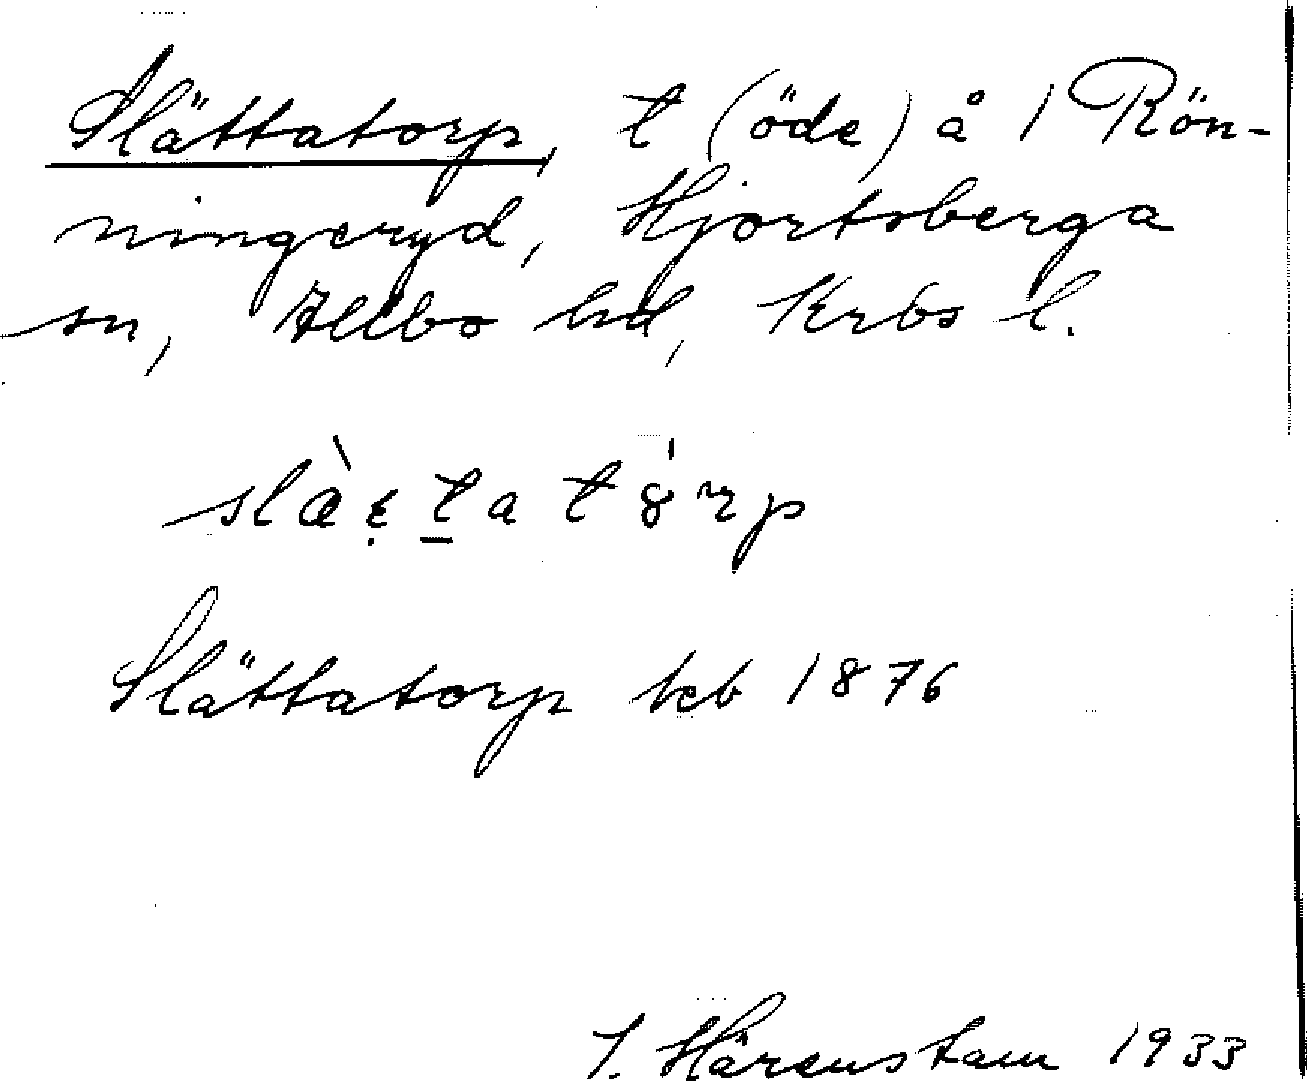 Slättatorp, t (öde) å 1 Rön-
ningeryd, Hjortsberga
sn, Allbo hd, Krbs l.
slæ̀ɛ̣t̲ató̍rp
Slättatorp kb 1876
J. Hårenstam 1933